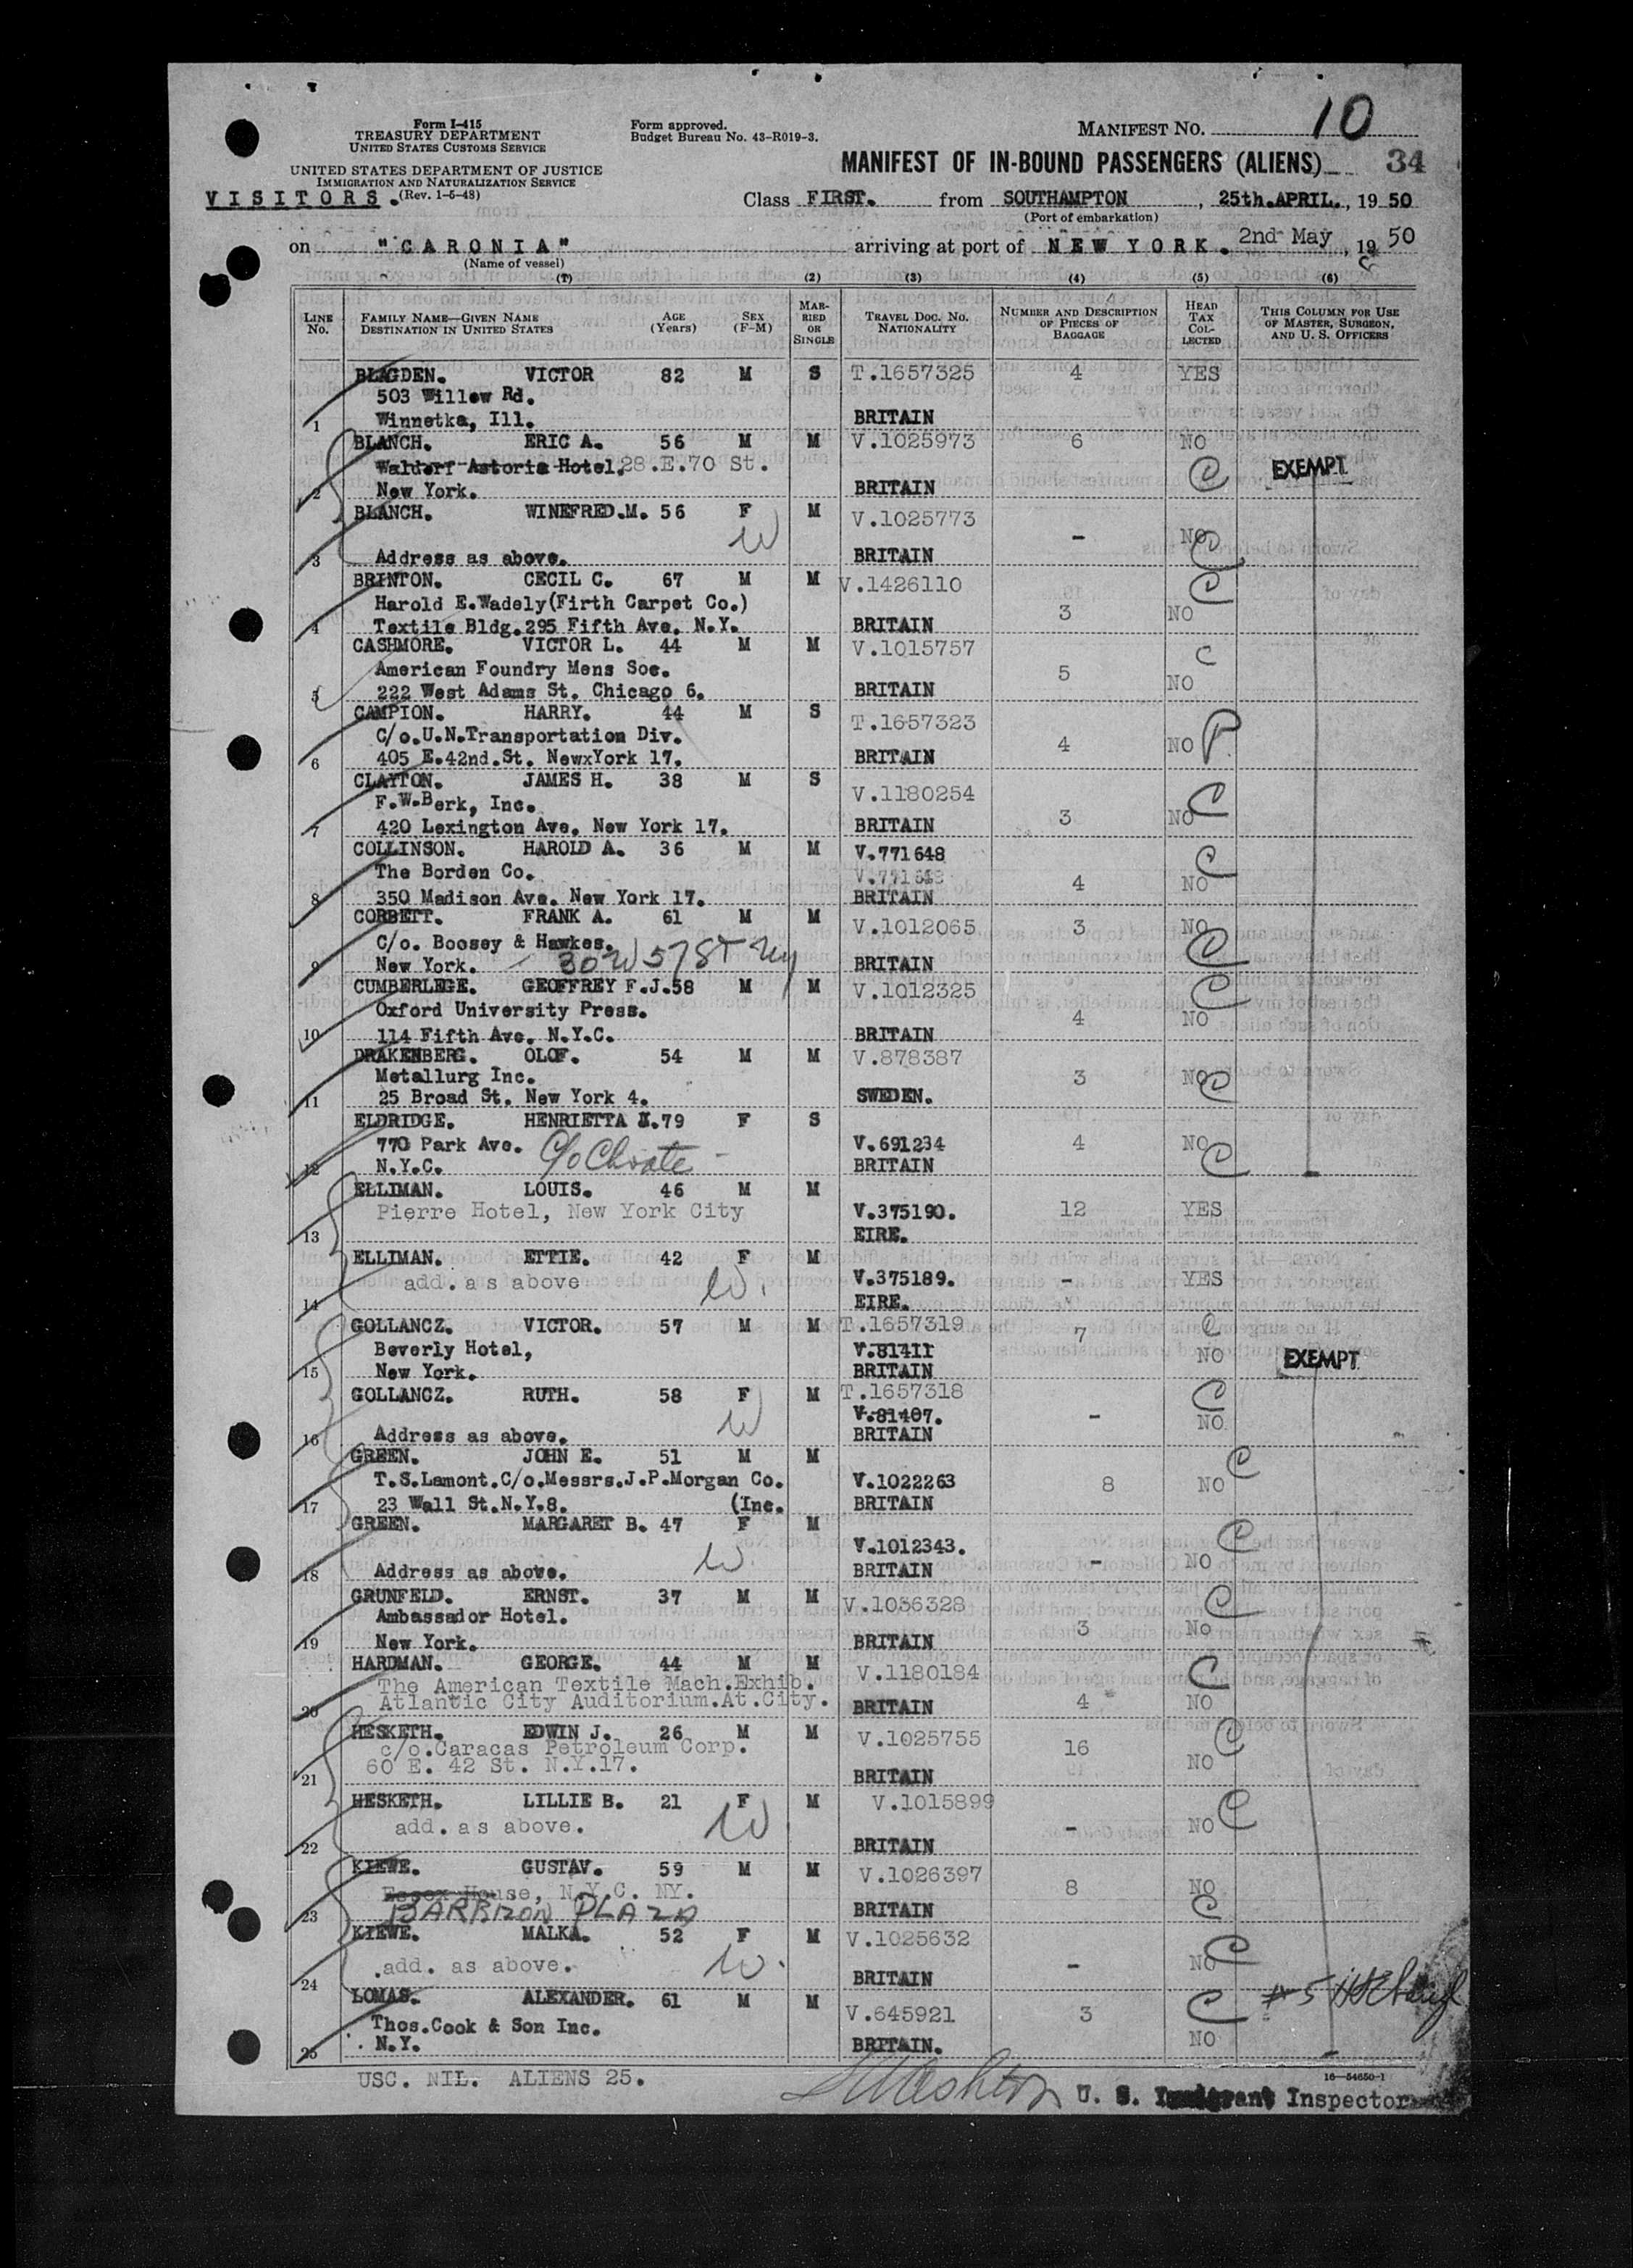 Form I-415
TREASURY DEPARTMENT
UNITED STATES CUSTOMS SERVICE
UNITED STATES DEPARTMENT OF JUSTICE
IMMIGRATION AND NATURALIZATION SERVICE
(Rev. 1-5-48)
VISITORS.
Form approved.
Budget Bureau No. 43-R019-3.
MANIFEST NO. 10
MANIFEST OF IN-BOUND PASSENGERS (ALIENS) 34
Class FIRST. from SOUTHAMPTON, 25th.APRIL., 19 50
(Port of embarkation)
on "CARONIA" arriving at port of NEW YORK. 2nd May, 19 50
(Name of vessel)
(1) (2) (3) (4) (5) (6)
LINE No. FAMILY NAME—GIVEN NAME DESTINATION IN UNITED STATES AGE (Years) SEX (F-M) MARRIED OR SINGLE TRAVEL DOC. NO. NATIONALITY NUMBER AND DESCRIPTION OF PIECES OF BAGGAGE HEAD TAX COLLECTED THIS COLUMN FOR USE OF MASTER, SURGEON, AND U. S. OFFICERS
BLAGDEN. VICTOR 82 M S T.1657325 4 YES
503 Willow Rd.
1 Winnetka, Ill. BRITAIN
BLANCH. ERIC A. 56 M M V.1025973 6 NO
Waldorf-Astoria Hotel, 28.E.70 St. C EXEMPT
2 New York. BRITAIN
BLANCH. WINEFRED.M. 56 F M V.1025773
W - NO C
3 Address as above. BRITAIN
BRINTON. CECIL C. 67 M M V.1426110 C
Harold E.Wadely(Firth Carpet Co.) 3 NO
4 Textile Bldg.295 Fifth Ave. N.Y. BRITAIN
CASHMORE. VICTOR L. 44 M M V.1015757 C
American Foundry Mens Soc. 5 NO
5 222 West Adams St. Chicago 6. BRITAIN
CAMPION. HARRY. 44 M S T.1657323
C/o.U.N.Transportation Div. 4 NO P
6 405 E.42nd.St. NewxYork 17. BRITAIN
CLAYTON. JAMES H. 38 M S V.1180254 C
F.W.Berk, Inc. 3 NO
7 420 Lexington Ave. New York 17. BRITAIN
COLLINSON. HAROLD A. 36 M M V.771648 C
The Borden Co. V.771648 4 NO
8 350 Madison Ave. New York 17. BRITAIN
CORBETT. FRANK A. 61 M M V.1012065 3 NO
C/o. Boosey & Hawkes. C
9 New York. - 30 W 57 ST NY BRITAIN
CUMBERLEGE. GEOFFREY F.J.58 M M V.1012325 C
Oxford University Press. 4 NO
10 114 Fifth Ave. N.Y.C. BRITAIN
DRAKENBERG. OLOF. 54 M M V.878387
Metallurg Inc. 3 NO C
11 25 Broad St. New York 4. SWEDEN.
ELDRIDGE. HENRIETTA 79 F S
770 Park Ave. C/o Choate - V.691234 4 NO
12 N.Y.C. BRITAIN C
ELLIMAN. LOUIS. 46 M M
Pierre Hotel, New York City V.375190. 12 YES
13 EIRE.
ELLIMAN. ETTIE. 42 F M
add. as above W. V.375189. - YES
14 EIRE.
GOLLANCZ. VICTOR. 57 M M T.1657319 7 C
Beverly Hotel, V.81411 NO EXEMPT
15 New York. BRITAIN
GOLLANCZ. RUTH. 58 F M T.1657318 C
W V.81407. - NO
16 Address as above. BRITAIN
GREEN. JOHN E. 51 M M C
T.S.Lamont.C/o.Messrs.J.P.Morgan Co. V.1022263 8 NO
17 23 Wall St.N.Y.8. (Inc. BRITAIN
GREEN. MARGARET B. 47 F M C
W. V.1012343. - NO
18 Address as above. BRITAIN
GRUNFELD. ERNST. 37 M M V.1036328 C
Ambassador Hotel. 3 No
19 New York. BRITAIN
HARDMAN. GEORGE. 44 M M V.1180184 C
The American Textile Mach.Exhib. 4 NO
20 Atlantic City Auditorium.At.City. BRITAIN
HESKETH. EDWIN J. 26 M M V.1025755 C
c/o.Caracas Petroleum Corp. 16 NO
21 60 E. 42 St. N.Y.17. BRITAIN
HESKETH. LILLIE B. 21 F M V.1015899 C
add. as above. W - NO
22 BRITAIN
KIEWE. GUSTAV. 59 M M V.1026397
Essex House, N.Y.C. NY. 8 NO
23 BARBIZON PLAZA BRITAIN C
KIEWE. MALKA. 52 F M V.1025632 C
add. as above. W. - NO
24 BRITAIN
LOMAS. ALEXANDER. 61 M M V.645921 3 C #5
Thos.Cook & Son Inc. NO
25 N.Y. BRITAIN.
USC. NIL. ALIENS 25.
16—54650-1
U. S. Immigrant Inspector